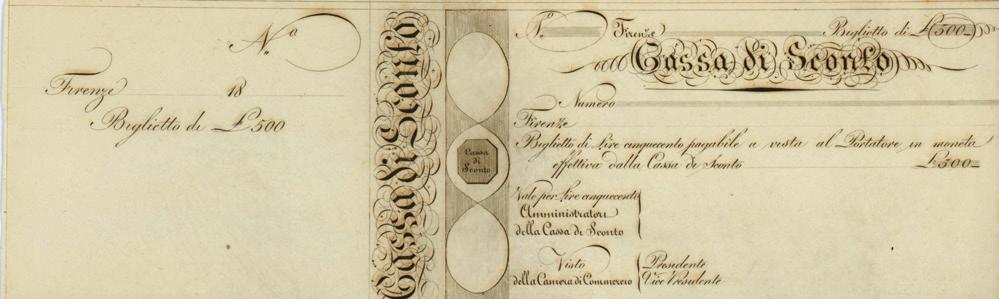 N.º
Firenze 18
Biglietto di £ 500
Cassa di Sconto
Cassa
di
Sconto
N.º Firenze Biglietto di £ 500
Cassa di Sconto
Numero
Firenze
Biglietto di Lire cinquecento pagabile a vista al Portatore in moneta
effettiva dalla Cassa di Sconto £ 500
Vale per Lire cinquecento
Amministratori
della Cassa di Sconto
Visto
della Camera di Commercio
Presidente
Vice Presidente